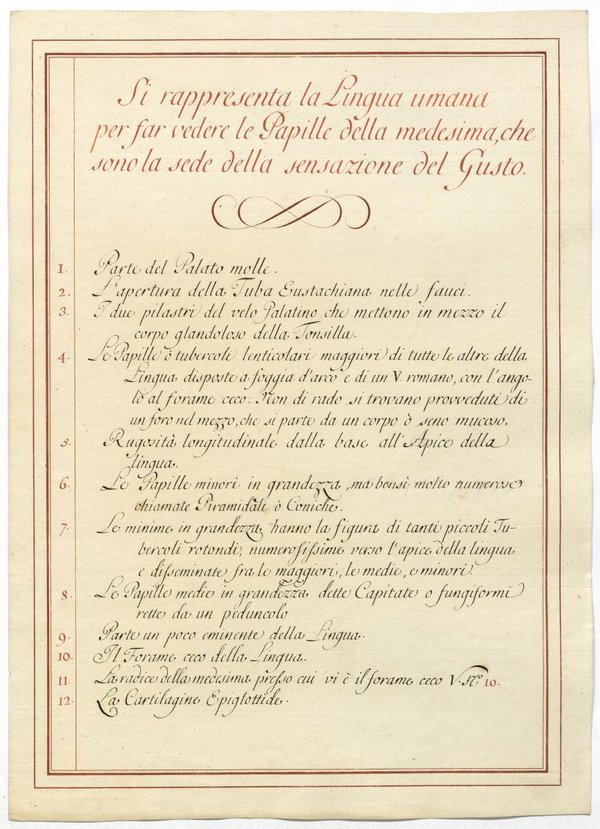 Si rappresenta la Lingua umana
per far vedere le Papille della medesima, che
sono la sede della sensazione del Gusto.
1. Parte del Palato molle.
2. L'apertura della Tuba Eustachiana nelle fauci.
3. I due pilastri del velo Palatino che mettono in mezzo il
corpo glandoloso della Tonsilla.
4. Le Papille ò tubercoli lenticolari maggiori di tutte le altre della
Lingua disposte a foggia d'arco e di un V romano, con l'ango-
lo al forame ceco: Non di rado si trovano provveduti di
un foro nel mezzo, che si parte da un corpo ò seno mucoso.
5. Rugosità longitudinale dalla base all'Apice della
lingua.
6. Le Papille minori in grandezza, ma bensi molto numerose
chiamate Piramidali ò Coniche.
7. Le minime in grandezza hanno la figura di tanti piccoli Tu-
bercoli rotondi, numerosissime verso l'apice della lingua,
e disseminate fra le maggiori, le medie, e minori.
8. Le Papille medie in grandezza dette Capitate o fungiformi
rette da un peduncolo
9. Parte un poco eminente della Lingua.
10. Il Forame ceco della Lingua.
11. La radice della medesima presso cui vi è il forame ceco V. No. 10.
12. La Cartilagine Epiglottide.